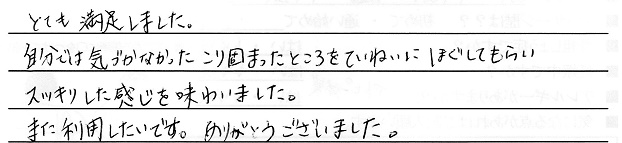 とても満足しました。
自分では気づかなかったこり固まったところをていねいにほぐしてもらい
スッキリした感じを味わいました。
また利用したいです。ありがとうございました。